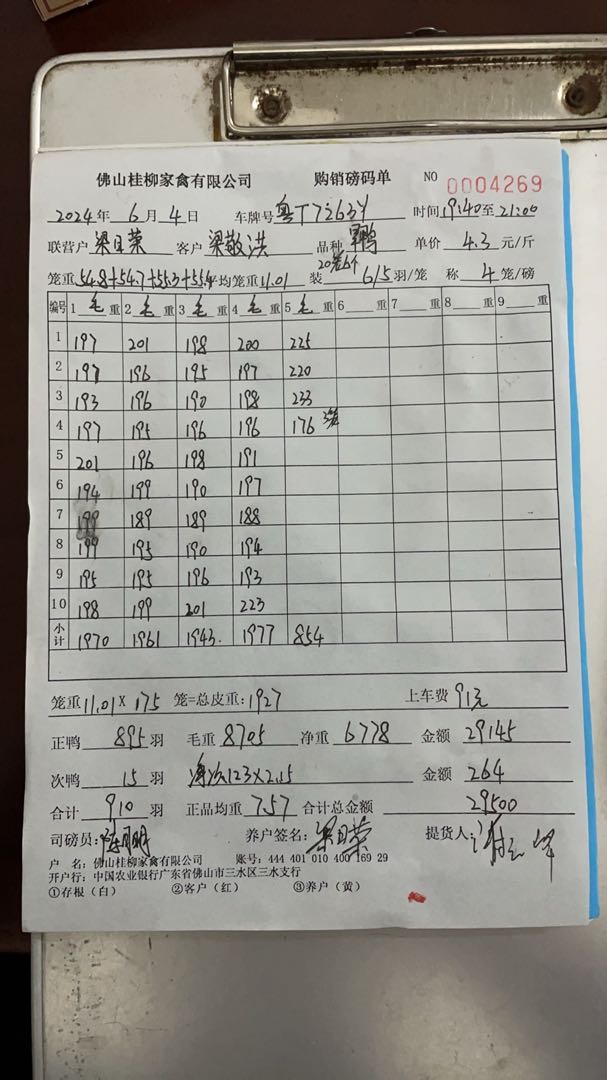 佛山桂柳家禽有限公司 购销磅码单 NO 0004269
2024年 6月 4日 车牌号 粤T7263Y 时间 19:40至 21:00
联营户 梁日荣 客户 梁敬洪 品种 鸭 单价 4.3 元/斤
笼重 54.8+54.7+55.3+55.4 平均笼重 11.01 装 6/5 羽/笼 称 4 笼/磅
编号 1 毛 重 2 毛 重 3 毛 重 4 毛 重 5 毛 重 6 重 7 重 8 重 9 重
1 197 201 198 200 225
2 197 196 195 197 220
3 193 196 190 198 233
4 197 195 196 196 176
5 201 196 198 191
6 194 199 190 197
7 199 189 189 188
8 199 195 190 194
9 195 195 196 193
10 198 199 201 223
小计 1970 1961 1943 1977 854
笼重 11.01 X 175 笼=总皮重: 1927 上车费 91元
正鸭 895 羽 毛重 8705 净重 6778 金额 29145
次鸭 15 羽 净次123×2.15 金额 264
合计 910 羽 正品均重 7.57 合计总金额 29500
司磅员: 养户签名: 梁日荣 提货人:
户 名: 佛山桂柳家禽有限公司 账号: 444 401 010 400 169 29
开户行: 中国农业银行广东省佛山市三水区三水支行
①存根（白） ②客户（红） ③养户（黄）